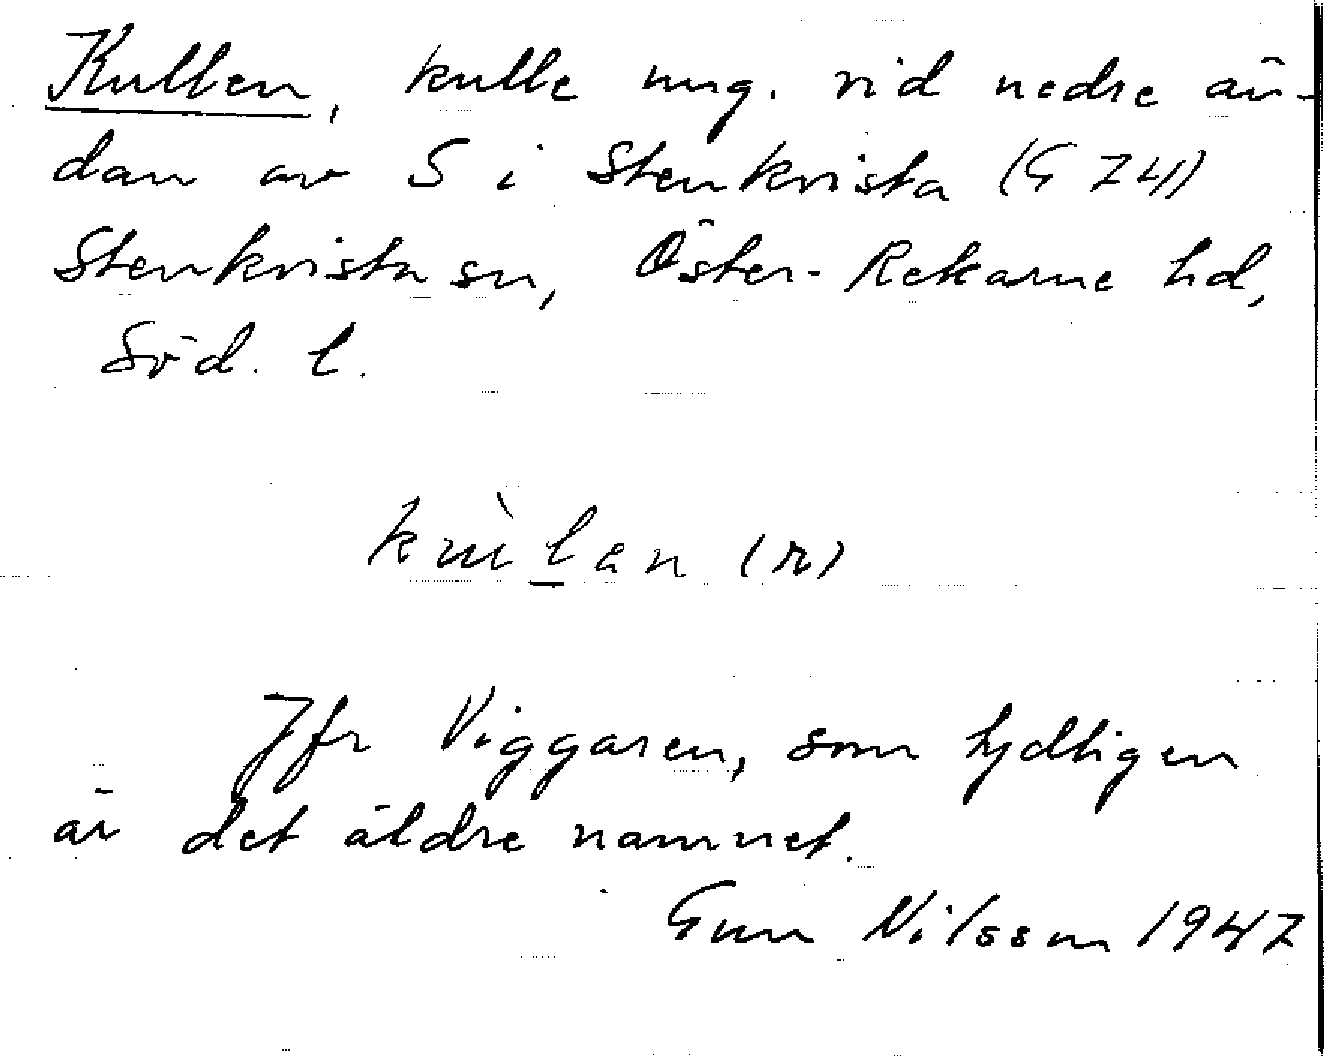 Kullen, kulle mg. vid nedre än-
dan av S i Stenkvista (G 74)
Stenkvista sn, Öster-Rekarne hd,
Söd. l.
Jfr Viggaren, som tydligen
är det äldre namnet.
Gun Nilsson 1947